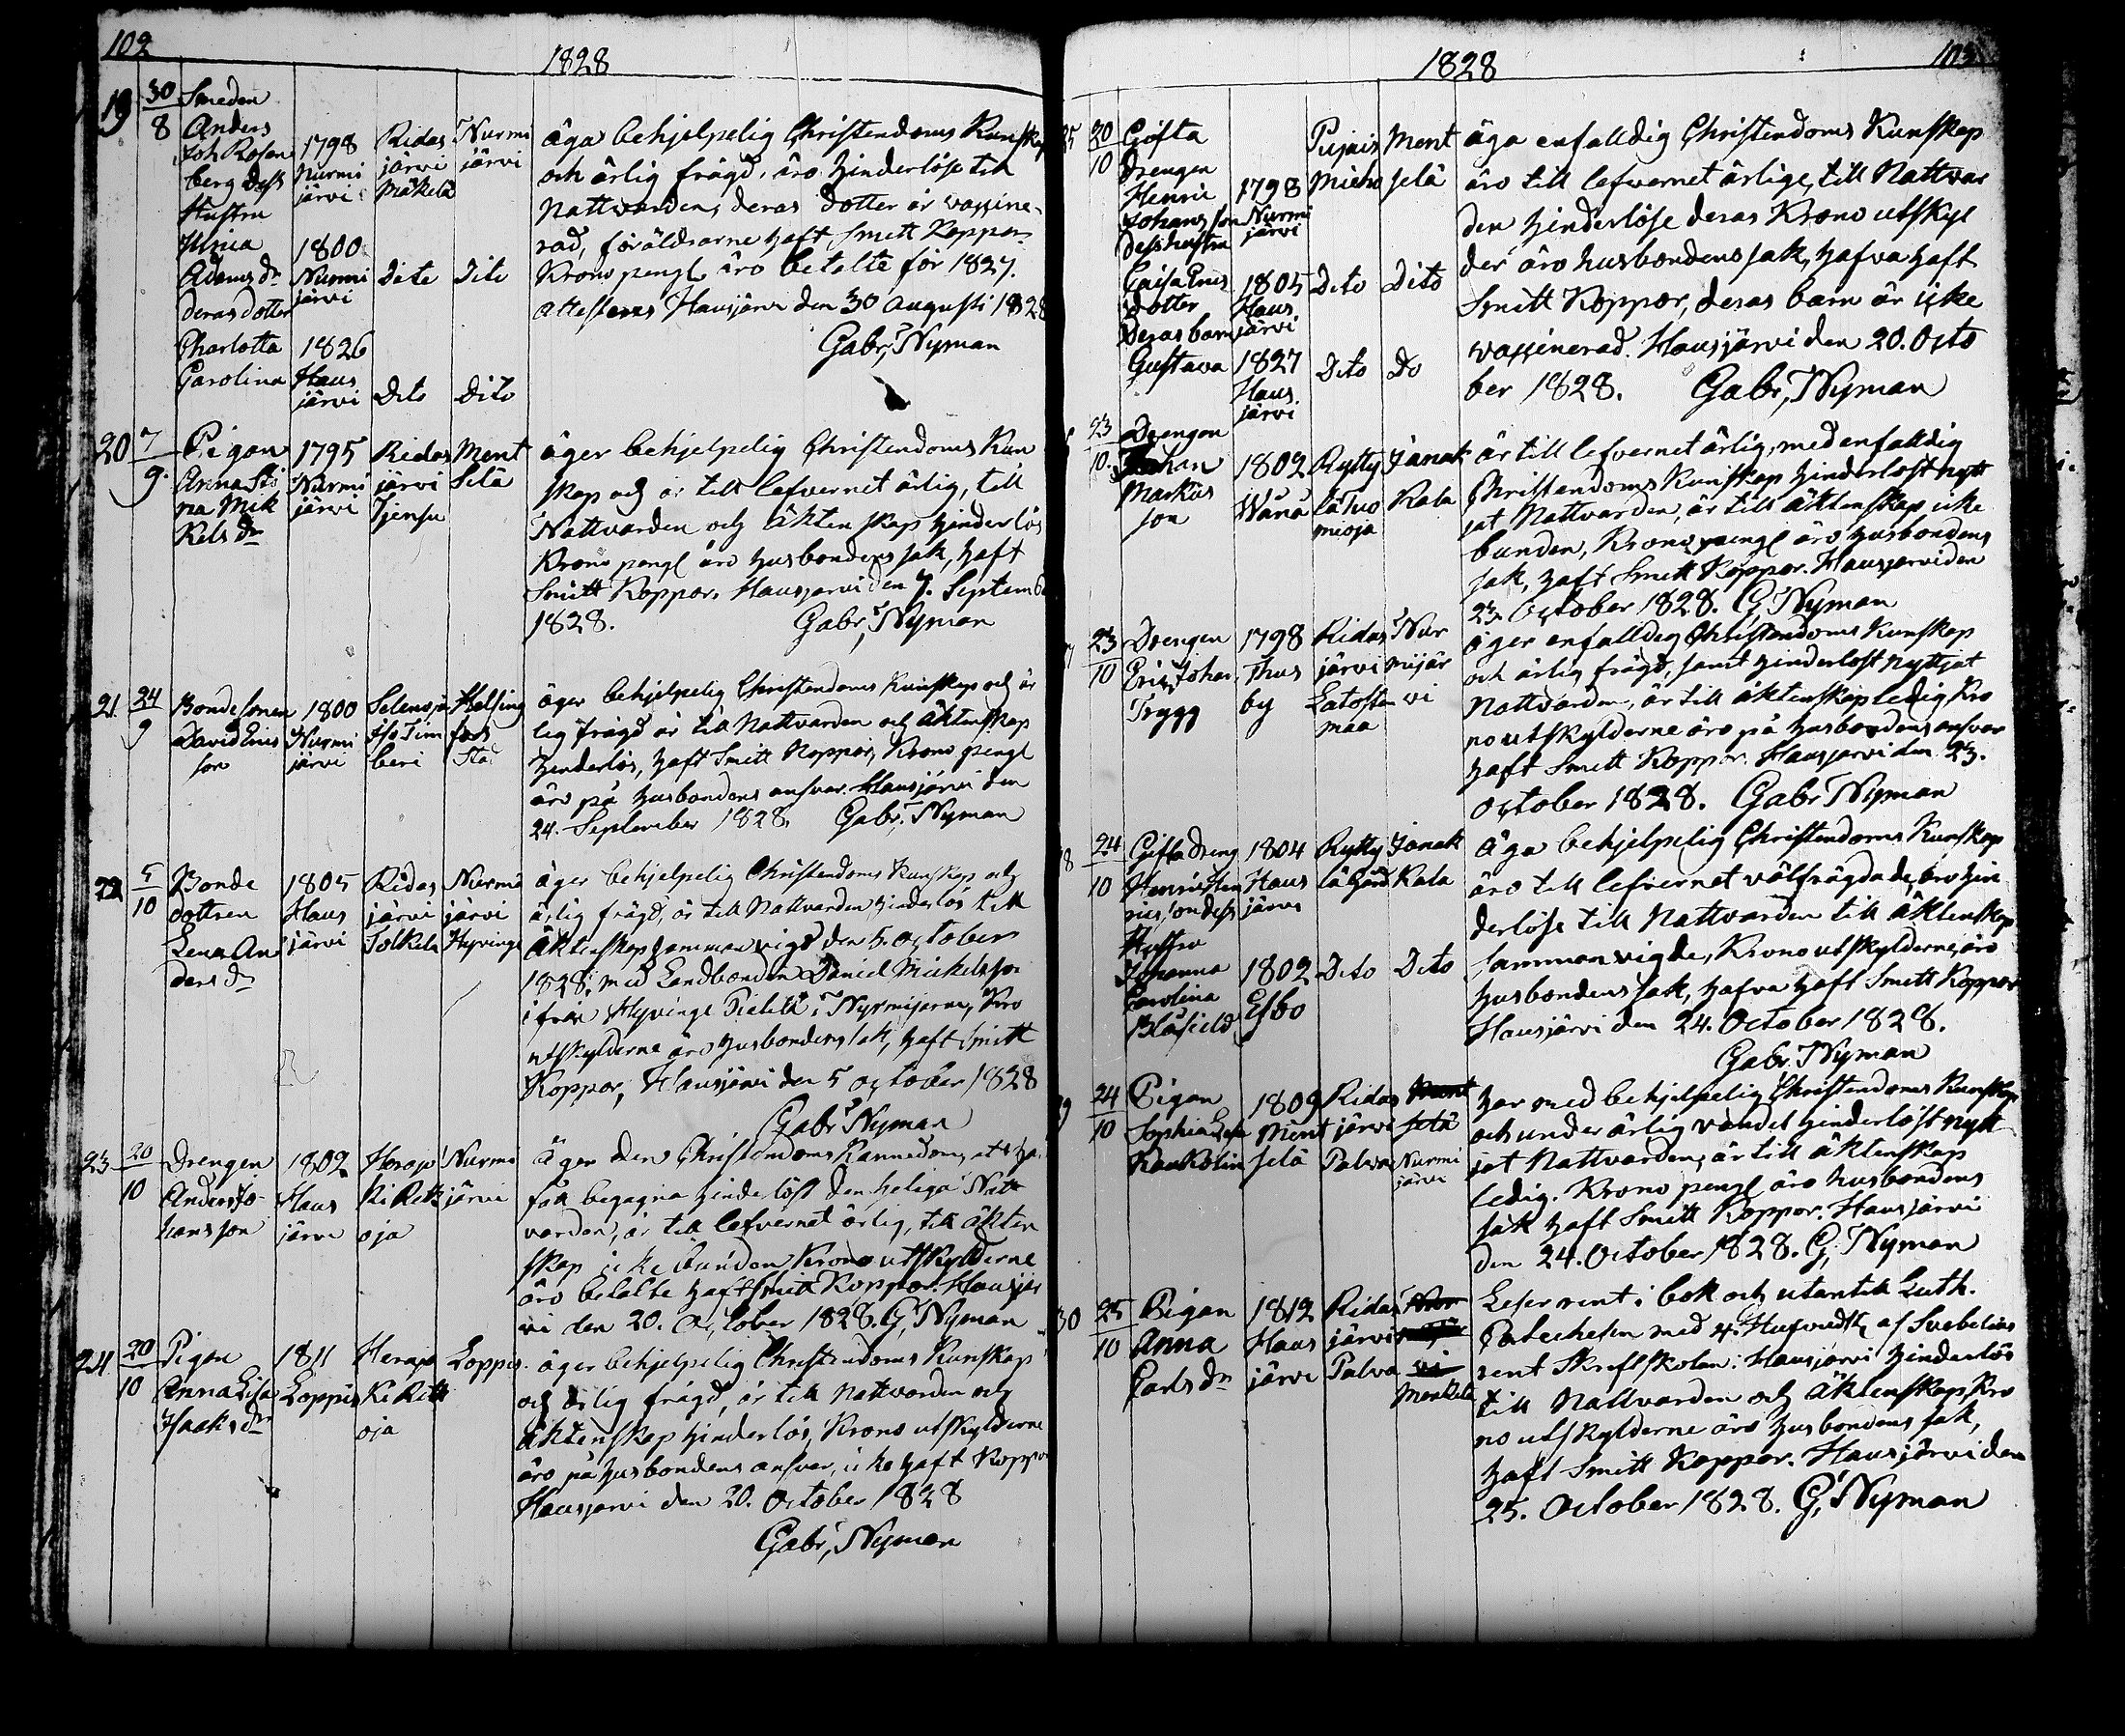 102
1828
19 30/8 Smeden
Anders
Joh Rosen
berg dess
Hustru
Ulrica
Adamsdr
deras dotter
Charlotta
Carolina
1798
Nurmi
järvi
1800
Nurmi
järvi
1826
Haus
järvi
Ridas
järvi
Mäkelä
Dito
Dito
Nurmi
järvi
Dito
Dito
äga behjelpelig Christendoms Kunskap
och ärlig frägd, äro hinderlöse till
Nattvarden, deras dotter är vaxine-
rad, föräldrarne haft Smitt Koppor
Krono pengr äro betalte för 1827.
attesteras Hausjärvi den 30 Augusti 1828
Gabr, Nyman
20 7/9. Pigan
Anna Sti
na Mik
kels dr
1795
Nurmi
järvi
Ridas
järvi
Tjensu
Ment
selä
äger behjelpelig Christendoms Kun
skap och är till lefvernet ärlig, till
Nattvarden och äktenskap hinderlös
Krono pengr äro husbondens sak, haft
Smitt Koppor, Hausjärvi den 7. Septemb
1828. Gabr, Nyman
21. 24/9 Bondesonen
David Erics
son
1800
Nurmi
järvi
Selensjö
beri
Helsing
fors
Stad
äger behjelpelig Christendoms Kunskap och är
lig frägd är till Nattvarden och äktenskap
hinderlös, haft Smitt Koppor, Krono pengr
äro på husbondens ansvar. Hausjärvi den
24. September 1828. Gabr, Nyman
22 5/10 Bonde
dottren
Lena An
ders dr
1805
Haus
järvi
Ridas
järvi
Solkela
Nurmi
järvi
Hyvinge
äger behjelpelig Christendoms Kunskap och
ärlig frägd, är till Nattvarden hinderlös till
äktenskap sammanvigd den 5. October
1828, med Landbonden Daniel Mickelsson
ifrån Hyvinge Pietilä i Nurmijervi, Kro
utskylderne äro husbondens sak, haft Smitt
Koppor, Hausjärvi den 5 October 1828
Gabr Nyman
23 20/10 Drengen
Anders Jo-
hansson
1802
Haus
järvi
Herajo
ki Ritt
oja
Nurmi
järvi
Äger den Christendoms Kännedom, att
få begagna hinderlöst den heliga Natt
varden, är till lefvernet ärlig, till äkten
skap icke bunden Krono utskylderne
äro betalte haft Smitt Koppor. Hausjär
vi den 20. October 1828. G, Nyman
24 20/10 Pigan
Anna Lisa
Isaks dr
1811
Loppis
Herajo
ki Ritt
oja
Loppis.
äger behjelpelig Christendoms Kunskap
och ärlig frägd, är till Nattvarden och
äktenskap hinderlös, Krono utskylderne
äro på husbondens ansvar, icke haft Koppor
Hausjarvi den 20. October 1828
Gabr, Nyman
1828
103
25 20/10 Gifta
Drengen
Henric
Johansson
dess hustru
Caisa Erics
dotter
Deras barn
Gustava
1798
Nurmi
järvi
1805
Haus
järvi
1827
Haus
järvi
Pujais
Micko
Dito
Dito
Ment
selä
Dito
Do
äga enfalldig Christendoms Kunskap
äro till lefvernet ärlige, till Nattvar
den hinderlöse deras Krono utskyl
der äro husbondens sak, hafva haft
Smitt Koppor, deras barn är icke
vaxinerad. Hausjärvi den 20. Octo
ber 1828. Gabr, Nyman
23/10. Drengen
Johan
Markus
son
1802
Wånå
Rytty
lä Tuo
mioja
Janak
kala
är till lefvernet ärlig, med enfalldig
Christendoms Kunskap hinderlöst nytt
jat Nattvarden, är till äktenskap icke
bunden, Krono pengr äro husbondens
sak, haft Smitt Koppor. Hausjarvi den
23. October 1828. G, Nyman
23/10 Drengen
Eric Johan
Trygg
1798
Thus
by
Ridas
järvi
Latosten
maa
Nur
mijär
vi
äger enfalldig Christendoms Kunskap
och ärlig frägd, samt hinderlöst nyttjat
Nattvarden, är till äktenskap ledig, Kro
no utskylderne äro på husbondens ansvar
haft Smitt Koppor. Hausjarvi den 23.
October 1828. Gabr Nyman
28 24/10 Gifta Dreng
Henric Hen
ricsson dess
Hustru
Johanna
Carolina
Blåfield
1804
Haus
järvi
1802
Esbo
Rytty
lä Gård
Dito
Janak
Kala
Dito
äga behjelpelig Christendoms Kunskap
äro till lefvernet välfrägdade, äro hin
derlöse till Nattvarden till äktenskap
sammanvigde, Krono utskylderne äro
husbondens sak, hafva haft Smitt Koppor
Hausjärvi den 24. October 1828.
Gabr. Nyman
29 24/10 Pigan
Sophia Lisa
Kaukolin
1809
Ment
selä
Ridas
järvi
Palva
Ment
selä
Nurmi
järvi
har med behjelpelig Christendoms Kunskap
och under ärlig vandel hinderlöst nytt
jat Nattvarden, är till äktenskap
ledig. Krono pengr äro husbondens
sak haft Smitt Koppor. Hausjärvi
den 24. October 1828. G, Nyman
30 25/10 Pigan
Anna
Carls dr
1812
Haus
järvi
Ridas
järvi
Palva
Nur
mijär
vi
Menkilä
Läser rent i bok och utantill Luth.
Catechesen med 4. Hufvudst, af Svebelius
rent Skriftskolan i Hausjarvi hinderlös
till Nattvarden och äktenskap, Kro
no utskylderne äro husbondens sak,
haft Smitt Koppor. Hausjärvi den
25. October 1828. G, Nyman